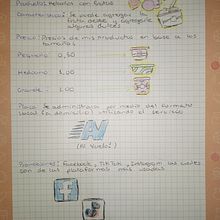 Producto: Helados con frutas
Característica: Se puede agregar
fruta desde y agregarle
algunos dulces
Precio: Precios de mis productos en base a los
tamaños
Pequeño: 0,50
Mediano: 1,00
Grande:
Plaza: Se administrara por medio del formato
local (a domicilio) utilizando el servicio
AV
(Al Vuelo)
Promociones: Facebook, TikTok, Instagram las cuales
son de las plataformas mas usadas